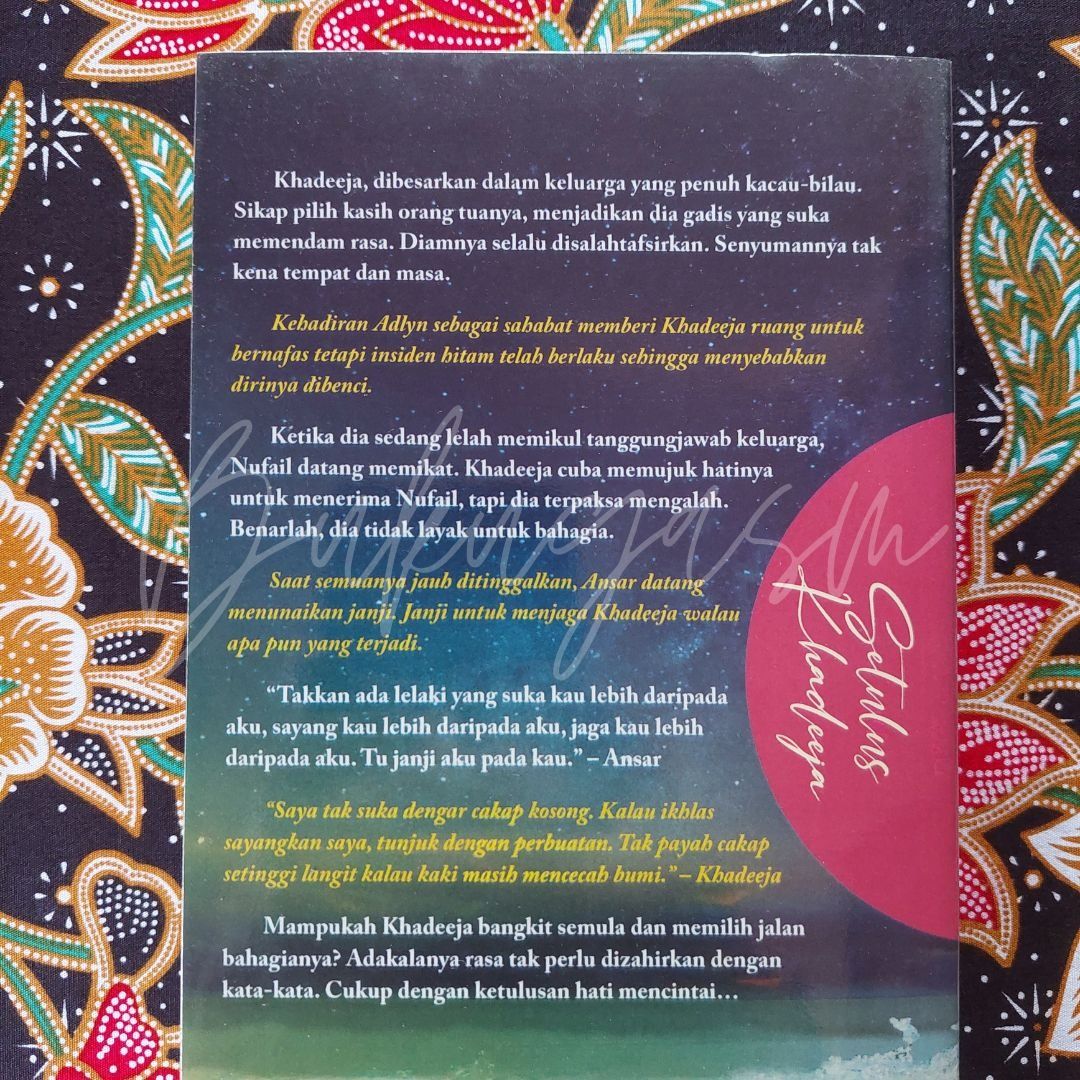 Khadeeja, dibesarkan dalam keluarga yang penuh kacau-bilau.
Sikap pilih kasih orang tuanya, menjadikan dia gadis yang suka
memendam rasa. Diamnya selalu disalahtafsirkan. Senyumannya tak
kena tempat dan masa.
Kehadiran Adlyn sebagai sahabat memberi Khadeeja ruang untuk
bernafas tetapi insiden hitam telah berlaku sehingga menyebabkan
dirinya dibenci.
Ketika dia sedang lelah memikul tanggungjawab keluarga,
Nufail datang memikat. Khadeeja cuba memujuk hatinya
untuk menerima Nufail, tapi dia terpaksa mengalah.
Benarlah, dia tidak layak untuk bahagia.
Saat semuanya jauh ditinggalkan, Ansar datang
menunaikan janji. Janji untuk menjaga Khadeeja walau
apa pun yang terjadi.
“Takkan ada lelaki yang suka kau lebih daripada
aku, sayang kau lebih daripada aku, jaga kau lebih
daripada aku. Tu janji aku pada kau.” – Ansar
“Saya tak suka dengar cakap kosong. Kalau ikhlas
sayangkan saya, tunjuk dengan perbuatan. Tak payah cakap
setinggi langit kalau kaki masih mencecah bumi.” – Khadeeja
Mampukah Khadeeja bangkit semula dan memilih jalan
bahagianya? Adakalanya rasa tak perlu dizahirkan dengan
kata-kata. Cukup dengan ketulusan hati mencintai…
Setulus
Khadeeja